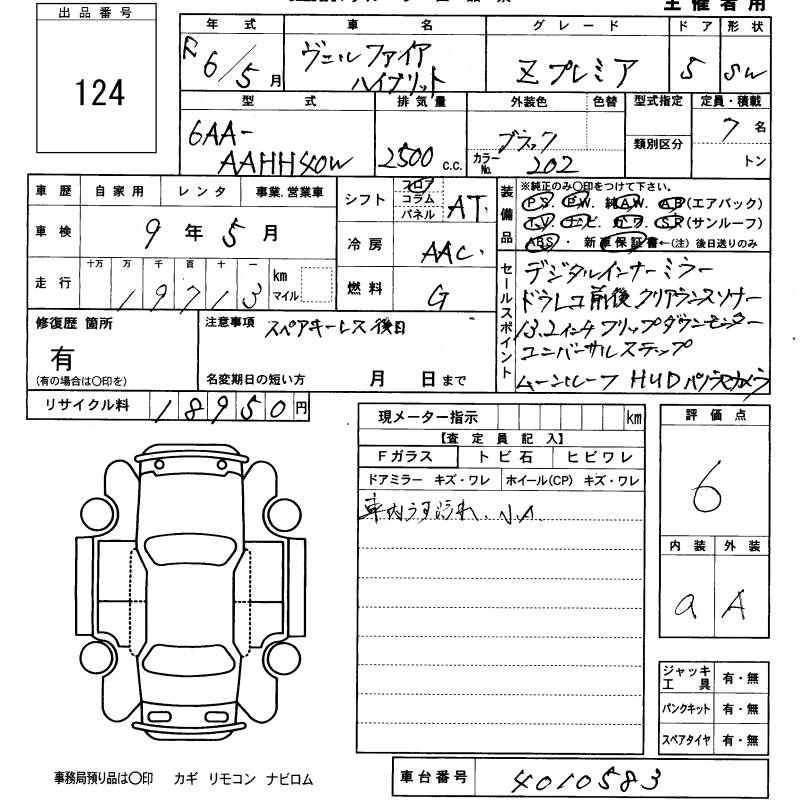 出品番号
124
主催者用
年式 車名 グレード ドア 形状
R6/5月 ヴェルファイア ハイブリット Zプレミア 5 SW
型式 排気量 外装色 色替 型式指定 定員・積載
6AA-
AAHH40W 2500c.c. ブラック カラーNo. 202 類別区分 7名 トン
車歴 自家用 レンタ 事業.営業車
車検 9年5月
走行 十万 万 千 百 十 一 km マイル
19713
シフト フロア コラム パネル AT
冷房 AAC
燃料 G
装備品
※純正のみ〇印をつけて下さい。
P.S P.W 純A.W A.B(エアバック)
T.V ナビ カワ S.R(サンルーフ)
ABS・新車保証書←(注)後日送りのみ
セールスポイント
デジタルインナーミラー
ドラレコ前後クリアランスソナー
13.2インチフリップダウンモニター
ユニバーサルステップ
ムーンルーフ HUD パノラマカメラ
修復歴 箇所
有
(有の場合は〇印を)
注意事項 スペアキーレス後日
名変期日の短い方 月 日まで
リサイクル料 18950円
現メーター指示 km
【査定員記入】
Fガラス トビ石 ヒビワレ
ドアミラー キズ・ワレ ホイール(CP) キズ・ワレ
車内うす汚れ、N.A.
評価点
6
内装 外装
a A
ジャッキ工具 有・無
パンクキット 有・無
スペアタイヤ 有・無
事務局預り品は〇印 カギ リモコン ナビロム
車台番号 4010583